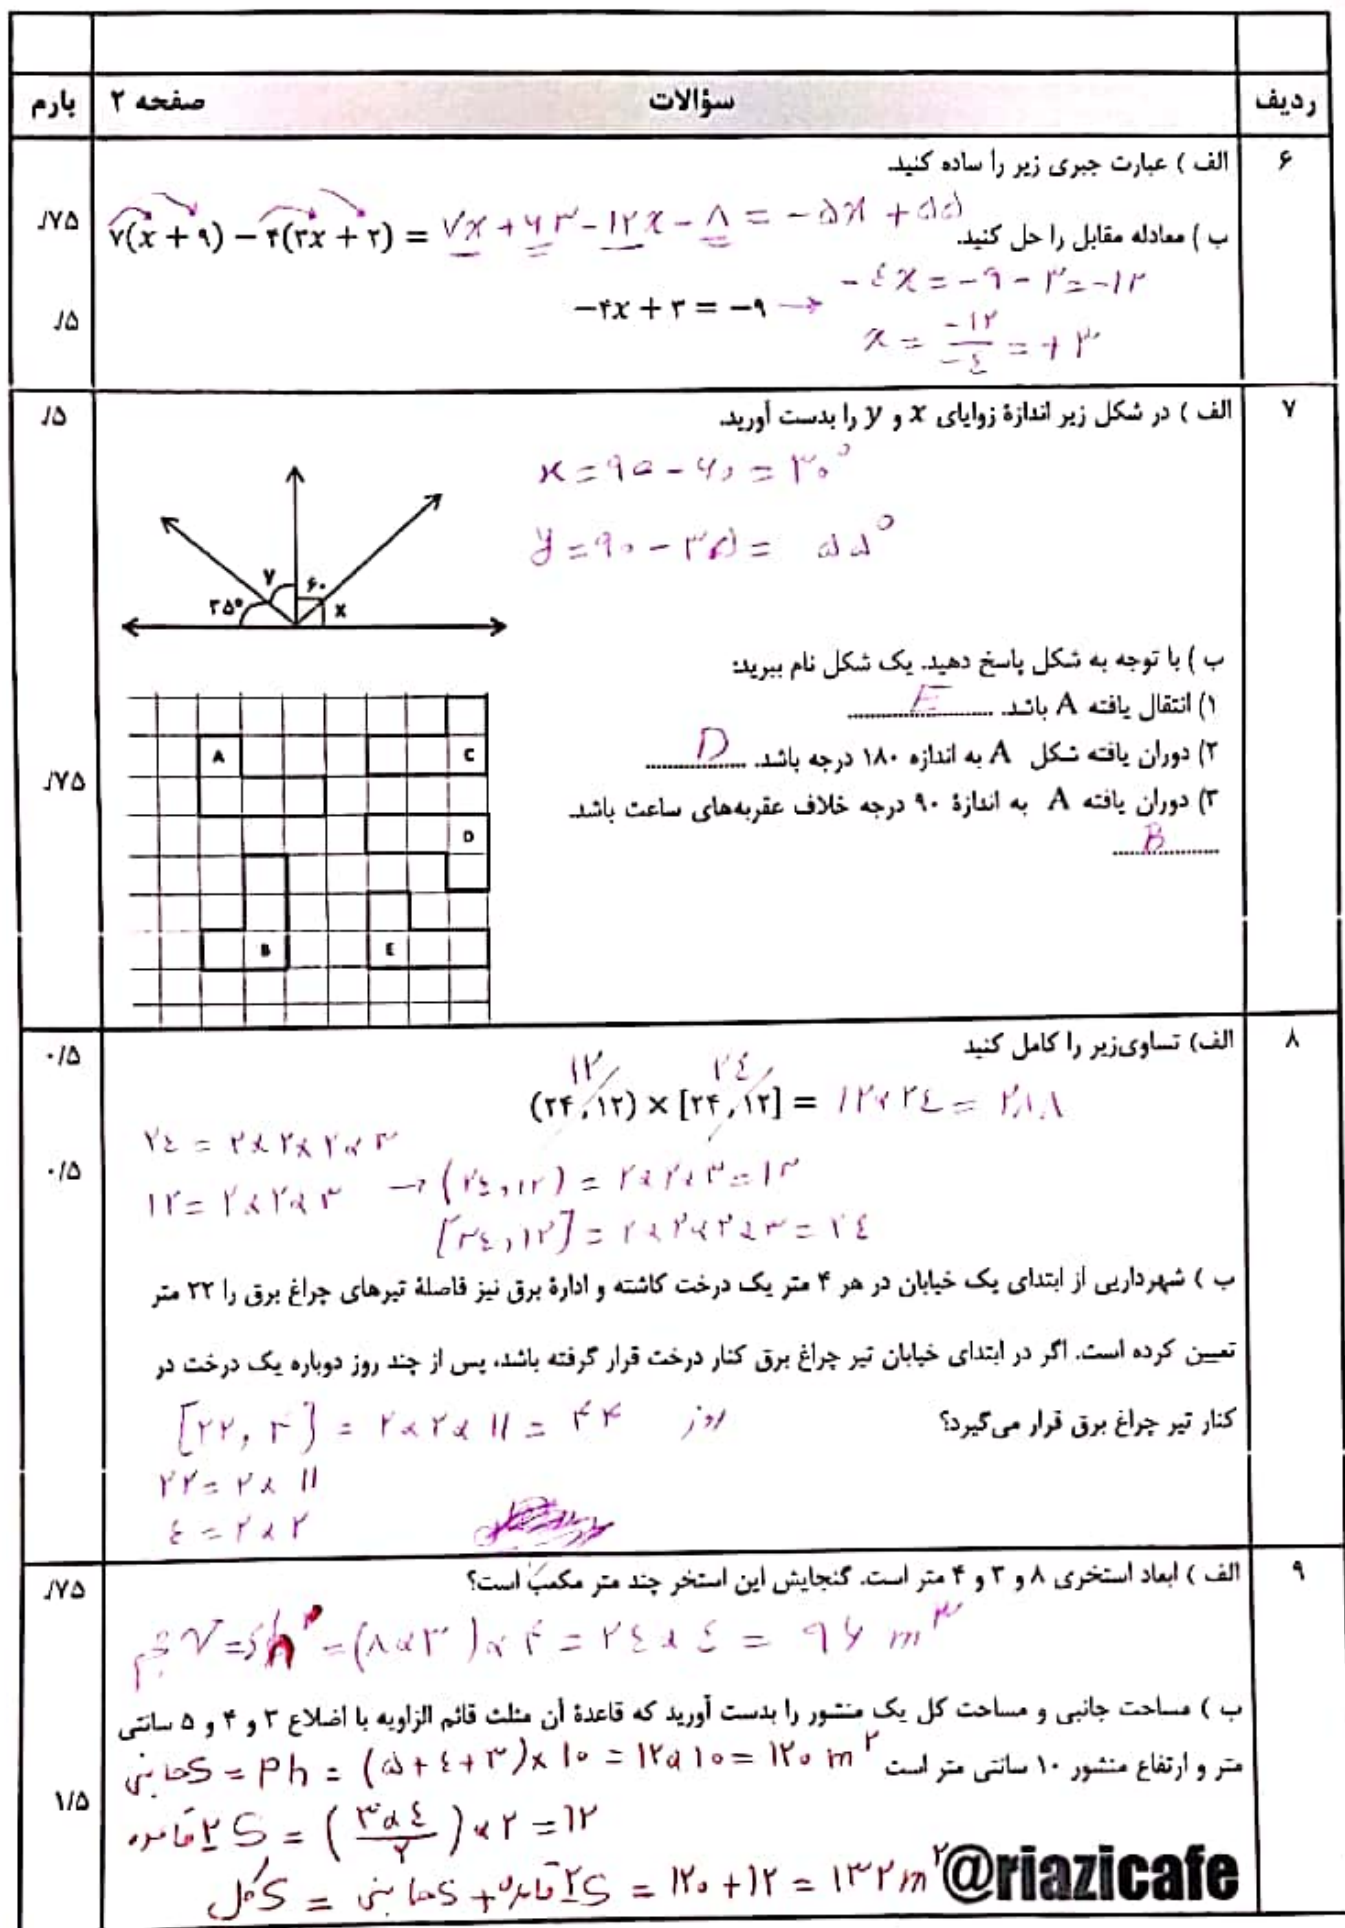 ردیف سؤالات صفحه ۲ بارم
۶ الف ) عبارت جبری زیر را ساده کنید.
۷(x + ۹) − ۴(۳x + ۲) = ۷x + ۶۳ − ۱۲x − ۸ = − ۵x + ۵۵ /۷۵
ب ) معادله مقابل را حل کنید.
−۴x + ۳ = −۹ → −٤x = −۹ − ۳ = −۱۲
x = −۱۲/−٤ = +۳ /۵
۷ الف ) در شکل زیر اندازهٔ زوایای x و y را بدست آورید. /۵
x = ۹۰ − ۶۰ = ۳۰°
y = ۹۰ − ۳۵ = ۵۵°
۳۵° y ۶۰ x
ب ) با توجه به شکل پاسخ دهید. یک شکل نام ببرید:
۱) انتقال یافته A باشد. E
۲) دوران یافته شکل A به اندازه ۱۸۰ درجه باشد. D
۳) دوران یافته A به اندازهٔ ۹۰ درجه خلاف عقربه‌های ساعت باشد. /۷۵
B
A C
D
B E
۸ الف) تساوی‌زیر را کامل کنید ۰/۵
۱۲ ۲٤
(۲۴,۱۲) × [۲۴,۱۲] = ۱۲×۲٤ = ۲۸۸
۲٤ = ۲×۲×۲×۳
۱۲ = ۲×۲×۳ → (۲٤,۱۲) = ۲×۲×۳ = ۱۲ ۰/۵
[۲٤,۱۲] = ۲×۲×۲×۳ = ۲٤
ب ) شهرداریی از ابتدای یک خیابان در هر ۴ متر یک درخت کاشته و ادارهٔ برق نیز فاصلهٔ تیرهای چراغ برق را ۲۲ متر
تعیین کرده است. اگر در ابتدای خیابان تیر چراغ برق کنار درخت قرار گرفته باشد، پس از چند روز دوباره یک درخت در
کنار تیر چراغ برق قرار می‌گیرد؟
[۲۲, ۴] = ۲×۲×۱۱ = ۴۴ روز
۲۲ = ۲×۱۱
٤ = ۲×۲
۹ الف ) ابعاد استخری ۸ و ۳ و ۴ متر است. گنجایش این استخر چند متر مکعب است؟ /۷۵
حجم V = Sh = (۸×۳)×۴ = ۲٤×٤ = ۹۶ m³
ب ) مساحت جانبی و مساحت کل یک منشور را بدست آورید که قاعدهٔ آن مثلث قائم الزاویه با اضلاع ۳ و ۴ و ۵ سانتی
متر و ارتفاع منشور ۱۰ سانتی متر است
جانبی S = Ph = (۵+٤+۳)×۱۰ = ۱۲×۱۰ = ۱۲۰ m²
۱/۵
قاعده ۲S = (۳×٤/۲)×۲ = ۱۲
کل S = جانبی S + قاعده ۲S = ۱۲۰+۱۲ = ۱۳۲ m²
@riazicafe